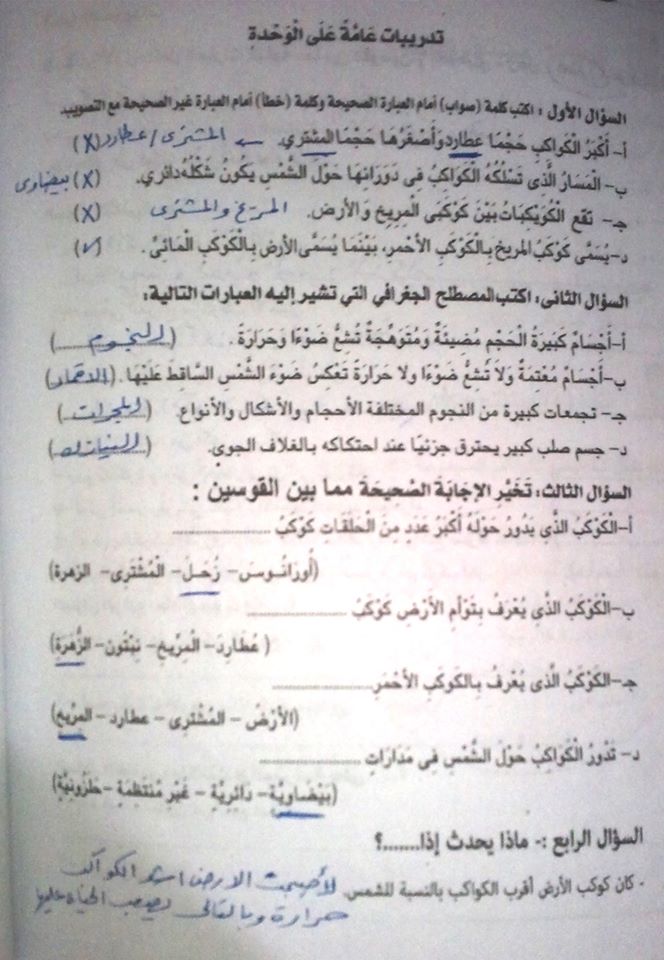 تدريبات عَامَّةً عَلَى الْوَحْدَة
السؤال الأول : اكتب كلمة (صواب) أمام العبارة الصحيحة وكلمة (خطأ) أمام العبارة غير الصحيحة مع التصويب
أ- أَكْبَرُ الْكَوَاكِبِ حَجْمًا عطَارِد وَأَصْغَرُهَا حَجْمًا المشْتَرِي. ← المشترى / عطارد (X)
ب- الْمَسَارُ الَّذِى تَسْلُكُهُ الْكَوَاكِبُ فِى دَوَرَانِهَا حَوْلَ الشَّمْسِ يَكُونُ شَكْلُهُ دائري. (X) بيضاوى
جـ- تقع الْكُوَيْكِبَاتُ بَيْنَ كَوْكَبَى الْمِرِّيخِ وَالأَرْضِ. المريخ والمشترى (X)
د- يُسَمَّى كَوْكَبُ المريخ بِالْكَوْكَبِ الأَحْمَرِ، بَيْنَمَا يُسَمَّى الأرض بِالْكَوْكَبِ الْمَائِىِّ. (✓)
السؤال الثانى: اكتب المصطلح الجغرافي التي تشير إليه العبارات التالية:
أ-أَجْسَامٌ كَبِيرَةُ الْحَجْمِ مُضِيئَةٌ وَمُتَوَهِّجَةٌ تُشِعُّ ضَوْءًا وَحَرَارَةً . (النجوم)
ب-أَجْسَامٌ مُعْتِمَةٌ وَلاَ تُشِعُّ ضَوْءًا ولا حَرَارَةً تَعْكِسُ ضَوْءَ الشَّمْسِ السَّاقط عَلَيْهَا. (الاقمار)
جـ- تجمعات كبيرة من النجوم المختلفة الأحجام والأشكال والأنواع. (المجرات)
د- جسم صلب كبير يحترق جزئيًا عند احتكاكه بالغلاف الجوي. (النيازك)
السؤال الثالث: تَخَيَّرِ الإجَابَةَ الصَّحِيحَةَ مما بين القوسين :
أ-الْكَوْكَبُ الَّذِي يَدُورُ حَوْلَهُ أَكْبَرُ عَدَدٍ مِنَ الْحَلَقَاتِ كَوْكَبُ ....................
(أُورَانُـوسَ- زُحَلَ- الْمُشْتَرَى- الزهرة)
ب-الْكَوْكَبُ الَّذِى يُعْرَفُ بِتَوْأَمِ الأَرْضِ كَوْكَبُ ....................
( عُطَارِدَ- الْمِرِّيخِ- نِبْتُون- الزُّهَرَةِ)
جـ-الكَوْكَبُ الَّذِى يُعْرَفُ بِالكَوكَبِ الأَحْمَرِ....................
(الأَرْضُ- المُشْتَرِى- عطارد- المرِّيخ)
د- تَدُورُ الْكَوَاكِبُ حَوْلَ الشَّمْسِ فِى مَدَارَاتٍ ....................
(بَيْضَاوِيَّةٍ- دَائِرِيَّةٍ- غَيْرَ مُنْتَظِمَةٍ- حَلَزُونِيَّةٍ)
السؤال الرابع :- ماذا يحدث إذا.......؟
- كان كوكب الأرض أقرب الكواكب بالنسبة للشمس. لأصبحت الارض اشد الكواكب
حرارة وبالتالى يصعب الحياة عليها